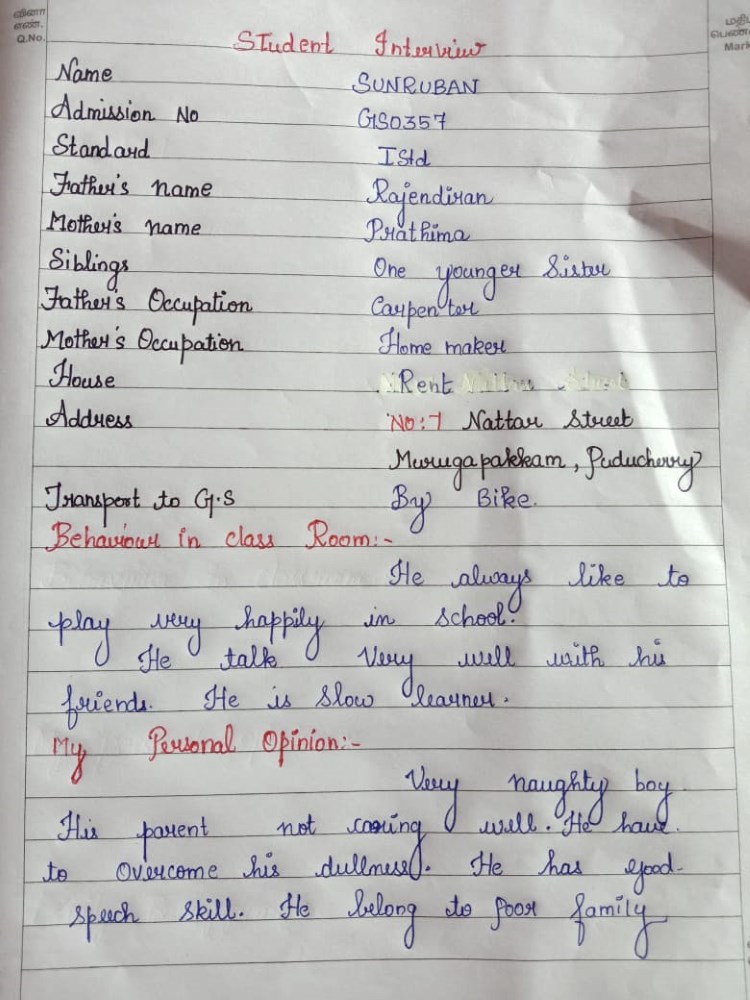 வினா
எண்.
Q.No.
பெண்
Mark
Student Interview
Name SUNRUBAN
Admission No GS0357
Standard I Std
Father's name Rajendiran
Mother's name Prathima
Siblings One younger Sister
Father's Occupation Carpenter
Mother's Occupation Home maker
House Rent
Address No:7 Nattar Street
Murugapakkam, Puducherry
Transport to G.S By Bike.
Behaviour in class Room:-
He always like to
play very happily in school.
He talk very well with his
friends. He is slow learner.
My Personal Opinion:-
Very naughty boy.
His parent not caring well. He have
to overcome his dullness. He has good
speech skill. He belong to poor family